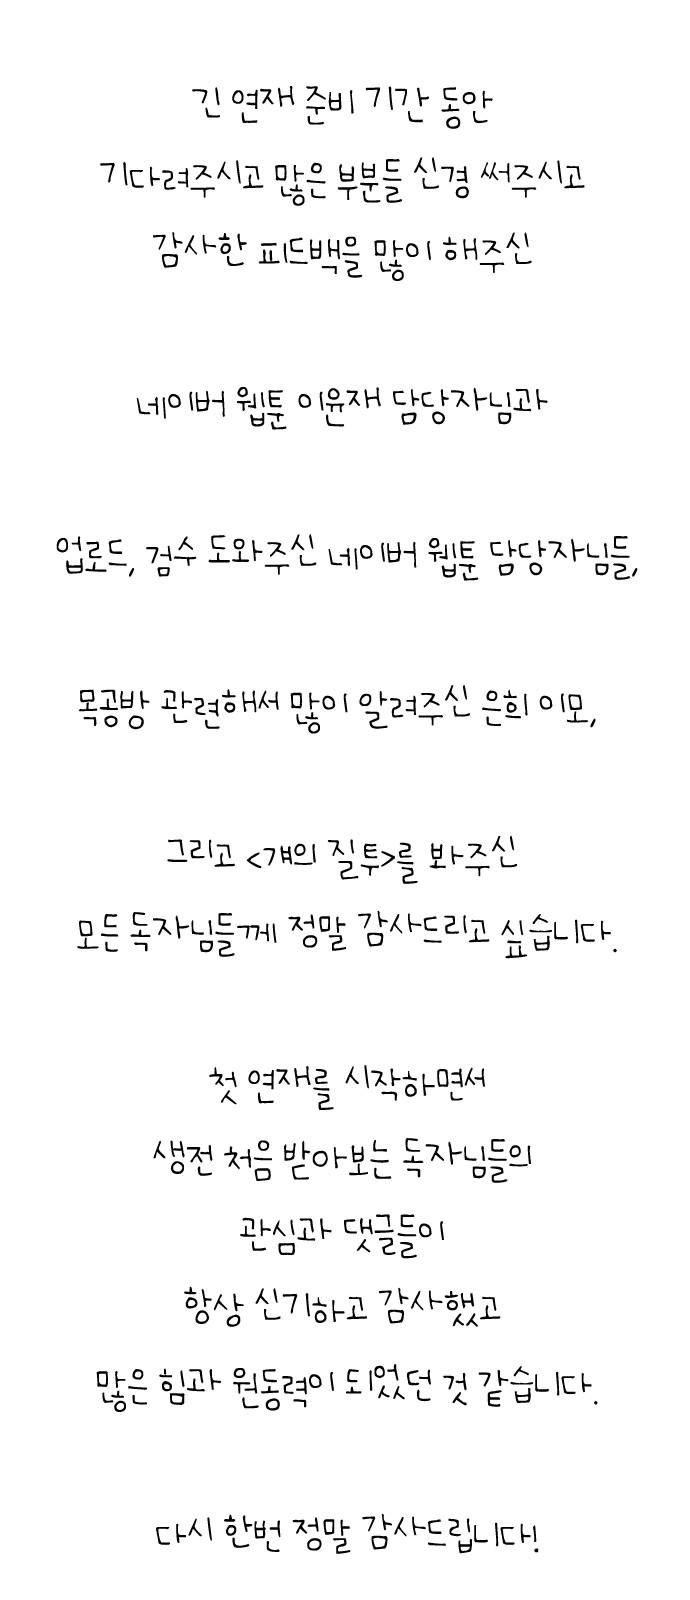 긴 연재 준비 기간 동안
기다려주시고 많은 부분들 신경 써주시고
감사한 피드백을 많이 해주신
네이버 웹툰 이윤재 담당자님과
업로드, 검수 도와주신 네이버 웹툰 담당자님들,
목공방 관련해서 많이 알려주신 은희 이모,
그리고 <걔의 질투>를 봐주신
모든 독자님들께 정말 감사드리고 싶습니다.
첫 연재를 시작하면서
생전 처음 받아보는 독자님들의
관심과 댓글들이
항상 신기하고 감사했고
많은 힘과 원동력이 되었던 것 같습니다.
다시 한번 정말 감사드립니다!